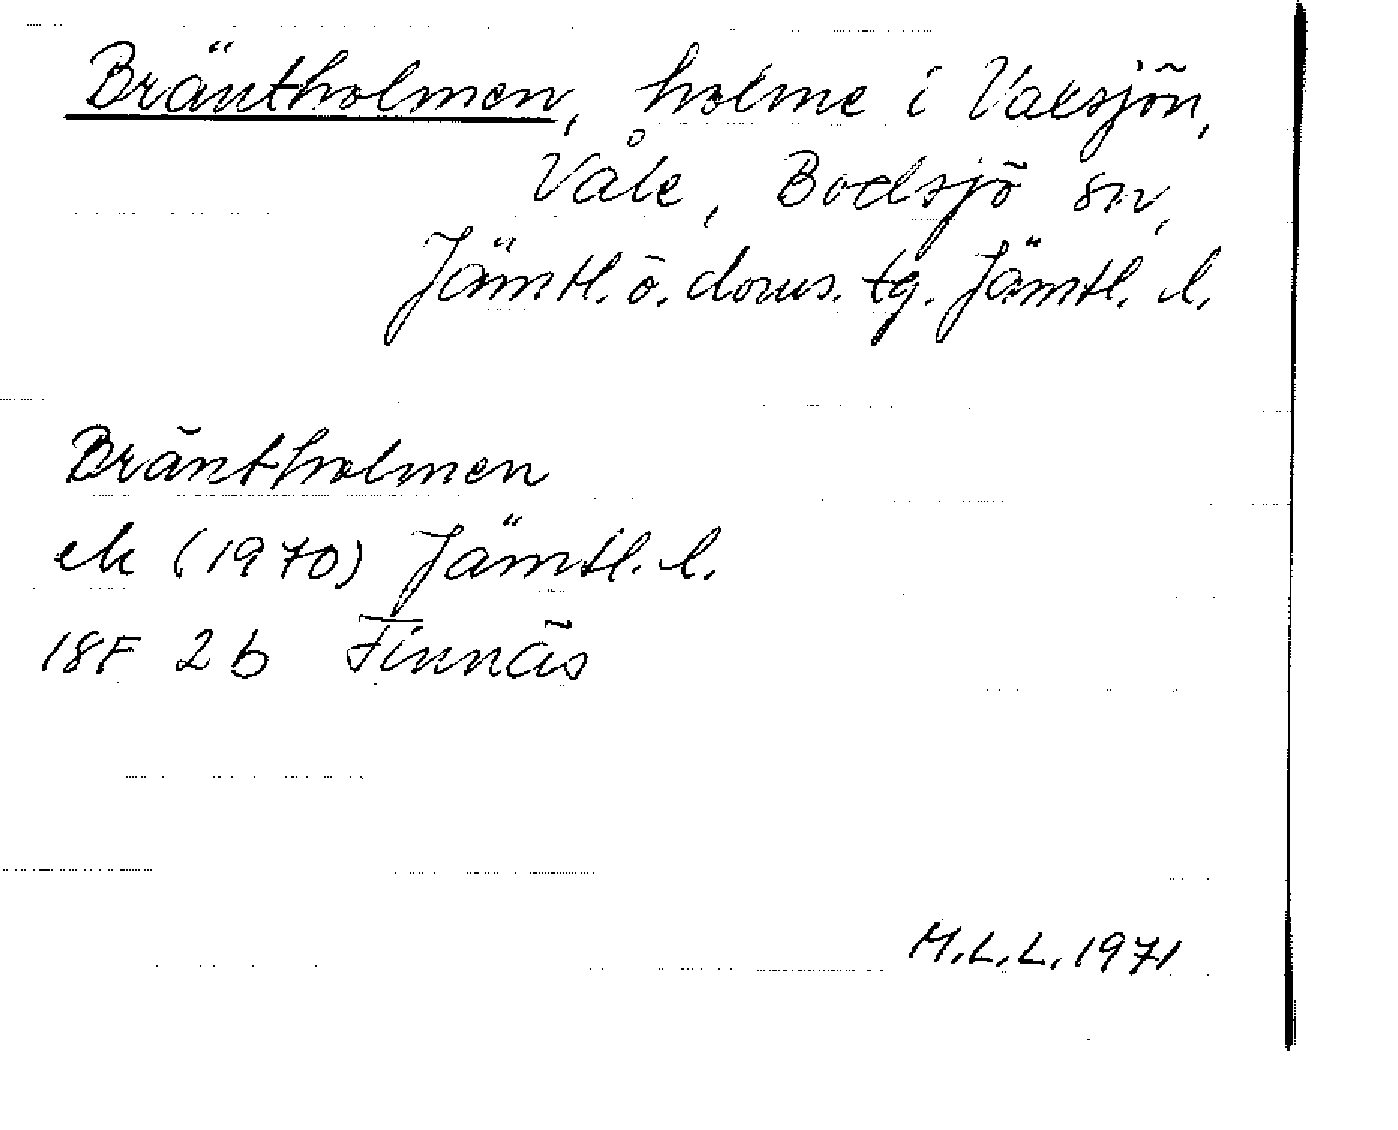 Bräntholmen, holme i Valsjön,
Våle, Bodsjö sn,
Jämtl. ö. doms. tg. Jämtl. l.
Bräntholmen
ek (1970) Jämtl. l.
18F 2b Finnäs
M.L.L. 1971